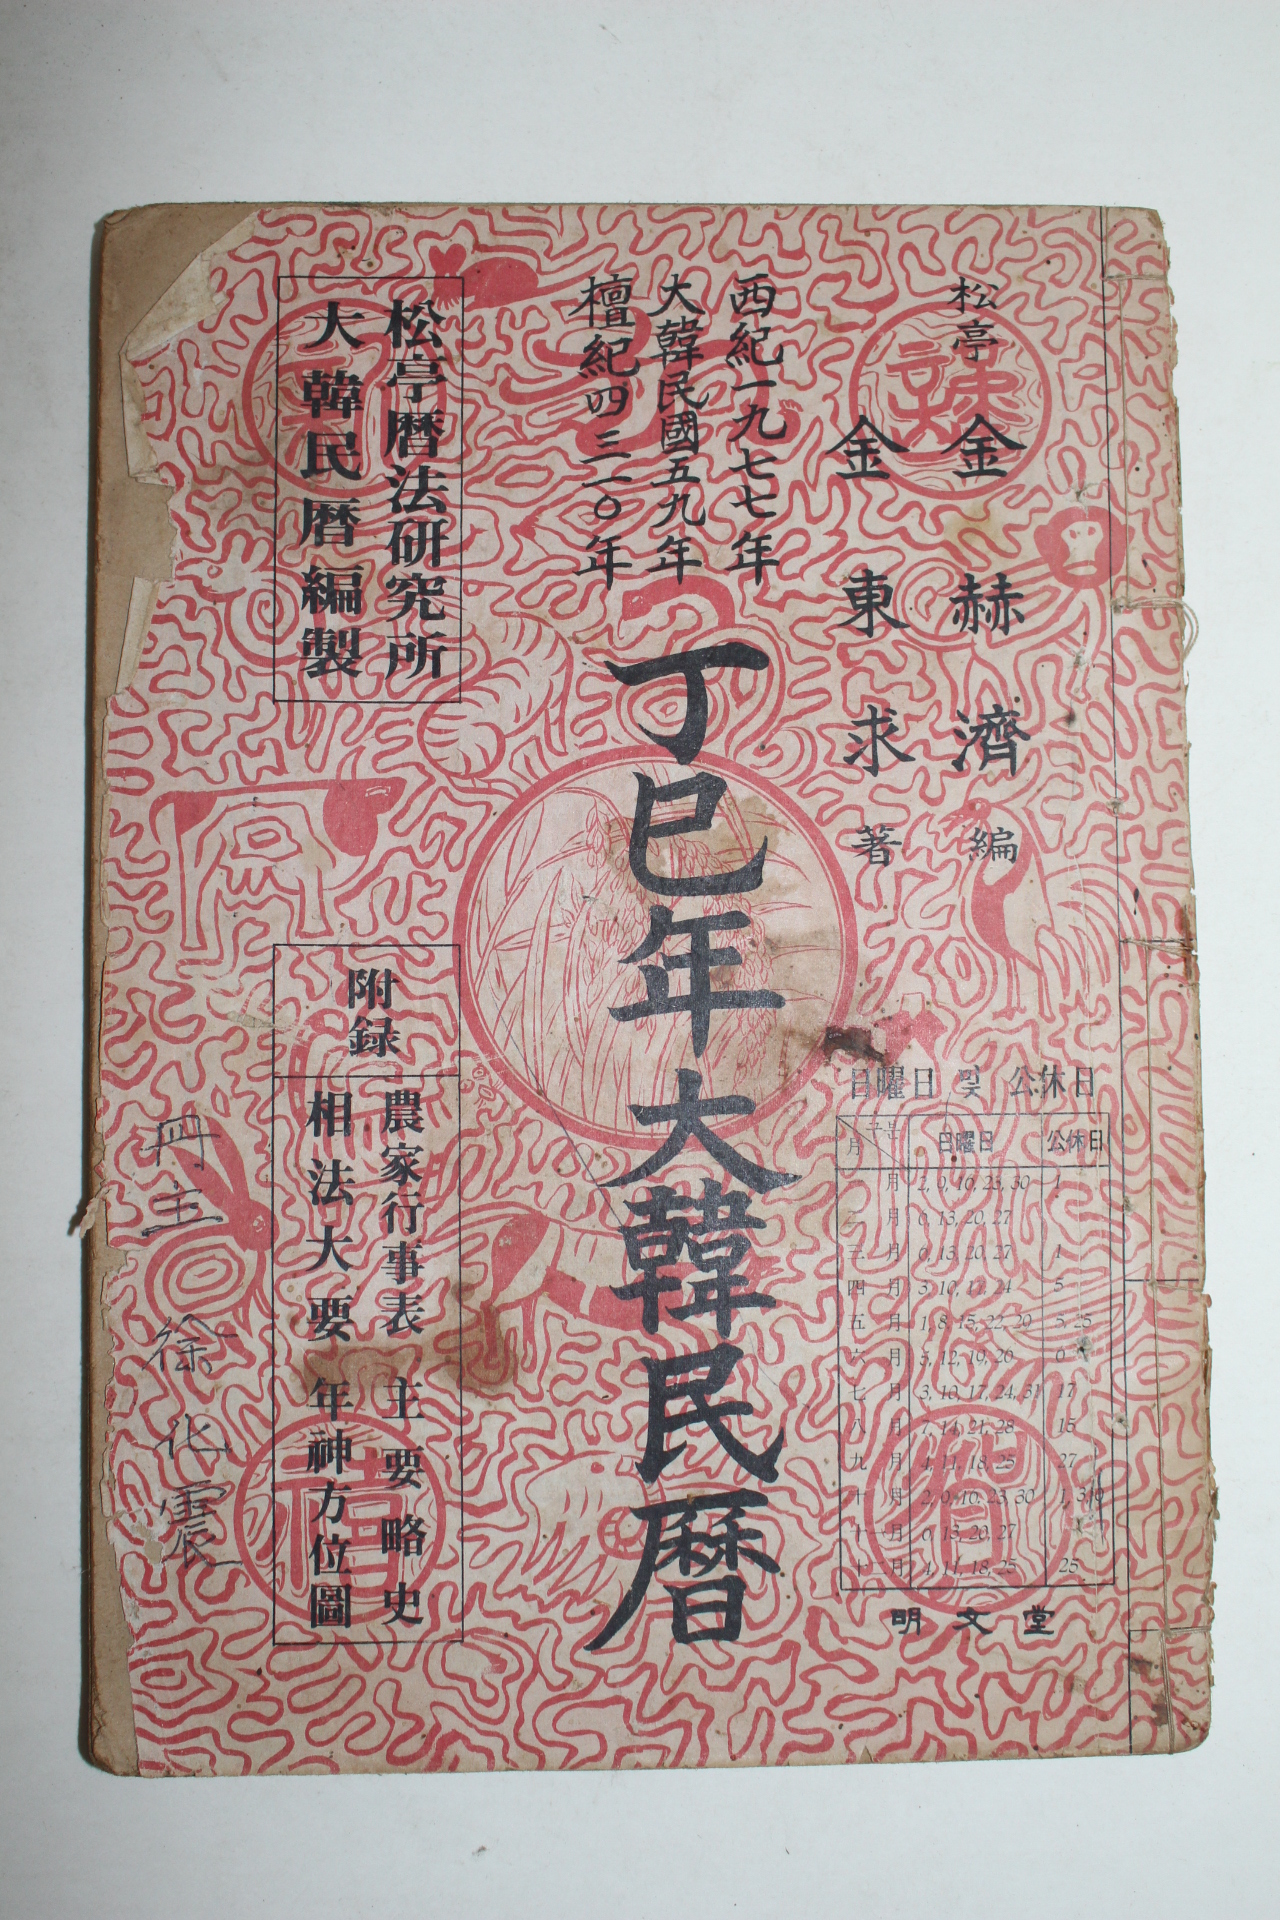 松亭 金赫濟 編
金東求 著
西紀一九七七年
大韓民國五九年
檀紀四三一○年
丁巳年大韓民曆
松亭曆法研究所
大韓民曆編製
附録
農家行事表 主要略史
相法大要 年神方位圖
日曜日 및 公休日
月 구분 日曜日 公休日
一月 2, 9, 16, 23, 30 1
二月 6, 13, 20, 27
三月 6, 13, 20, 27 1
四月 3, 10, 17, 24 5
五月 1, 8, 15, 22, 29 5, 25
六月 5, 12, 19, 26 6
七月 3, 10, 17, 24, 31 17
八月 7, 14, 21, 28 15
九月 4, 11, 18, 25 27
十月 2, 9, 16, 23, 30 1, 3, 9
十一月 6, 13, 20, 27
十二月 4, 11, 18, 25 25
明文堂
冊主 徐化震